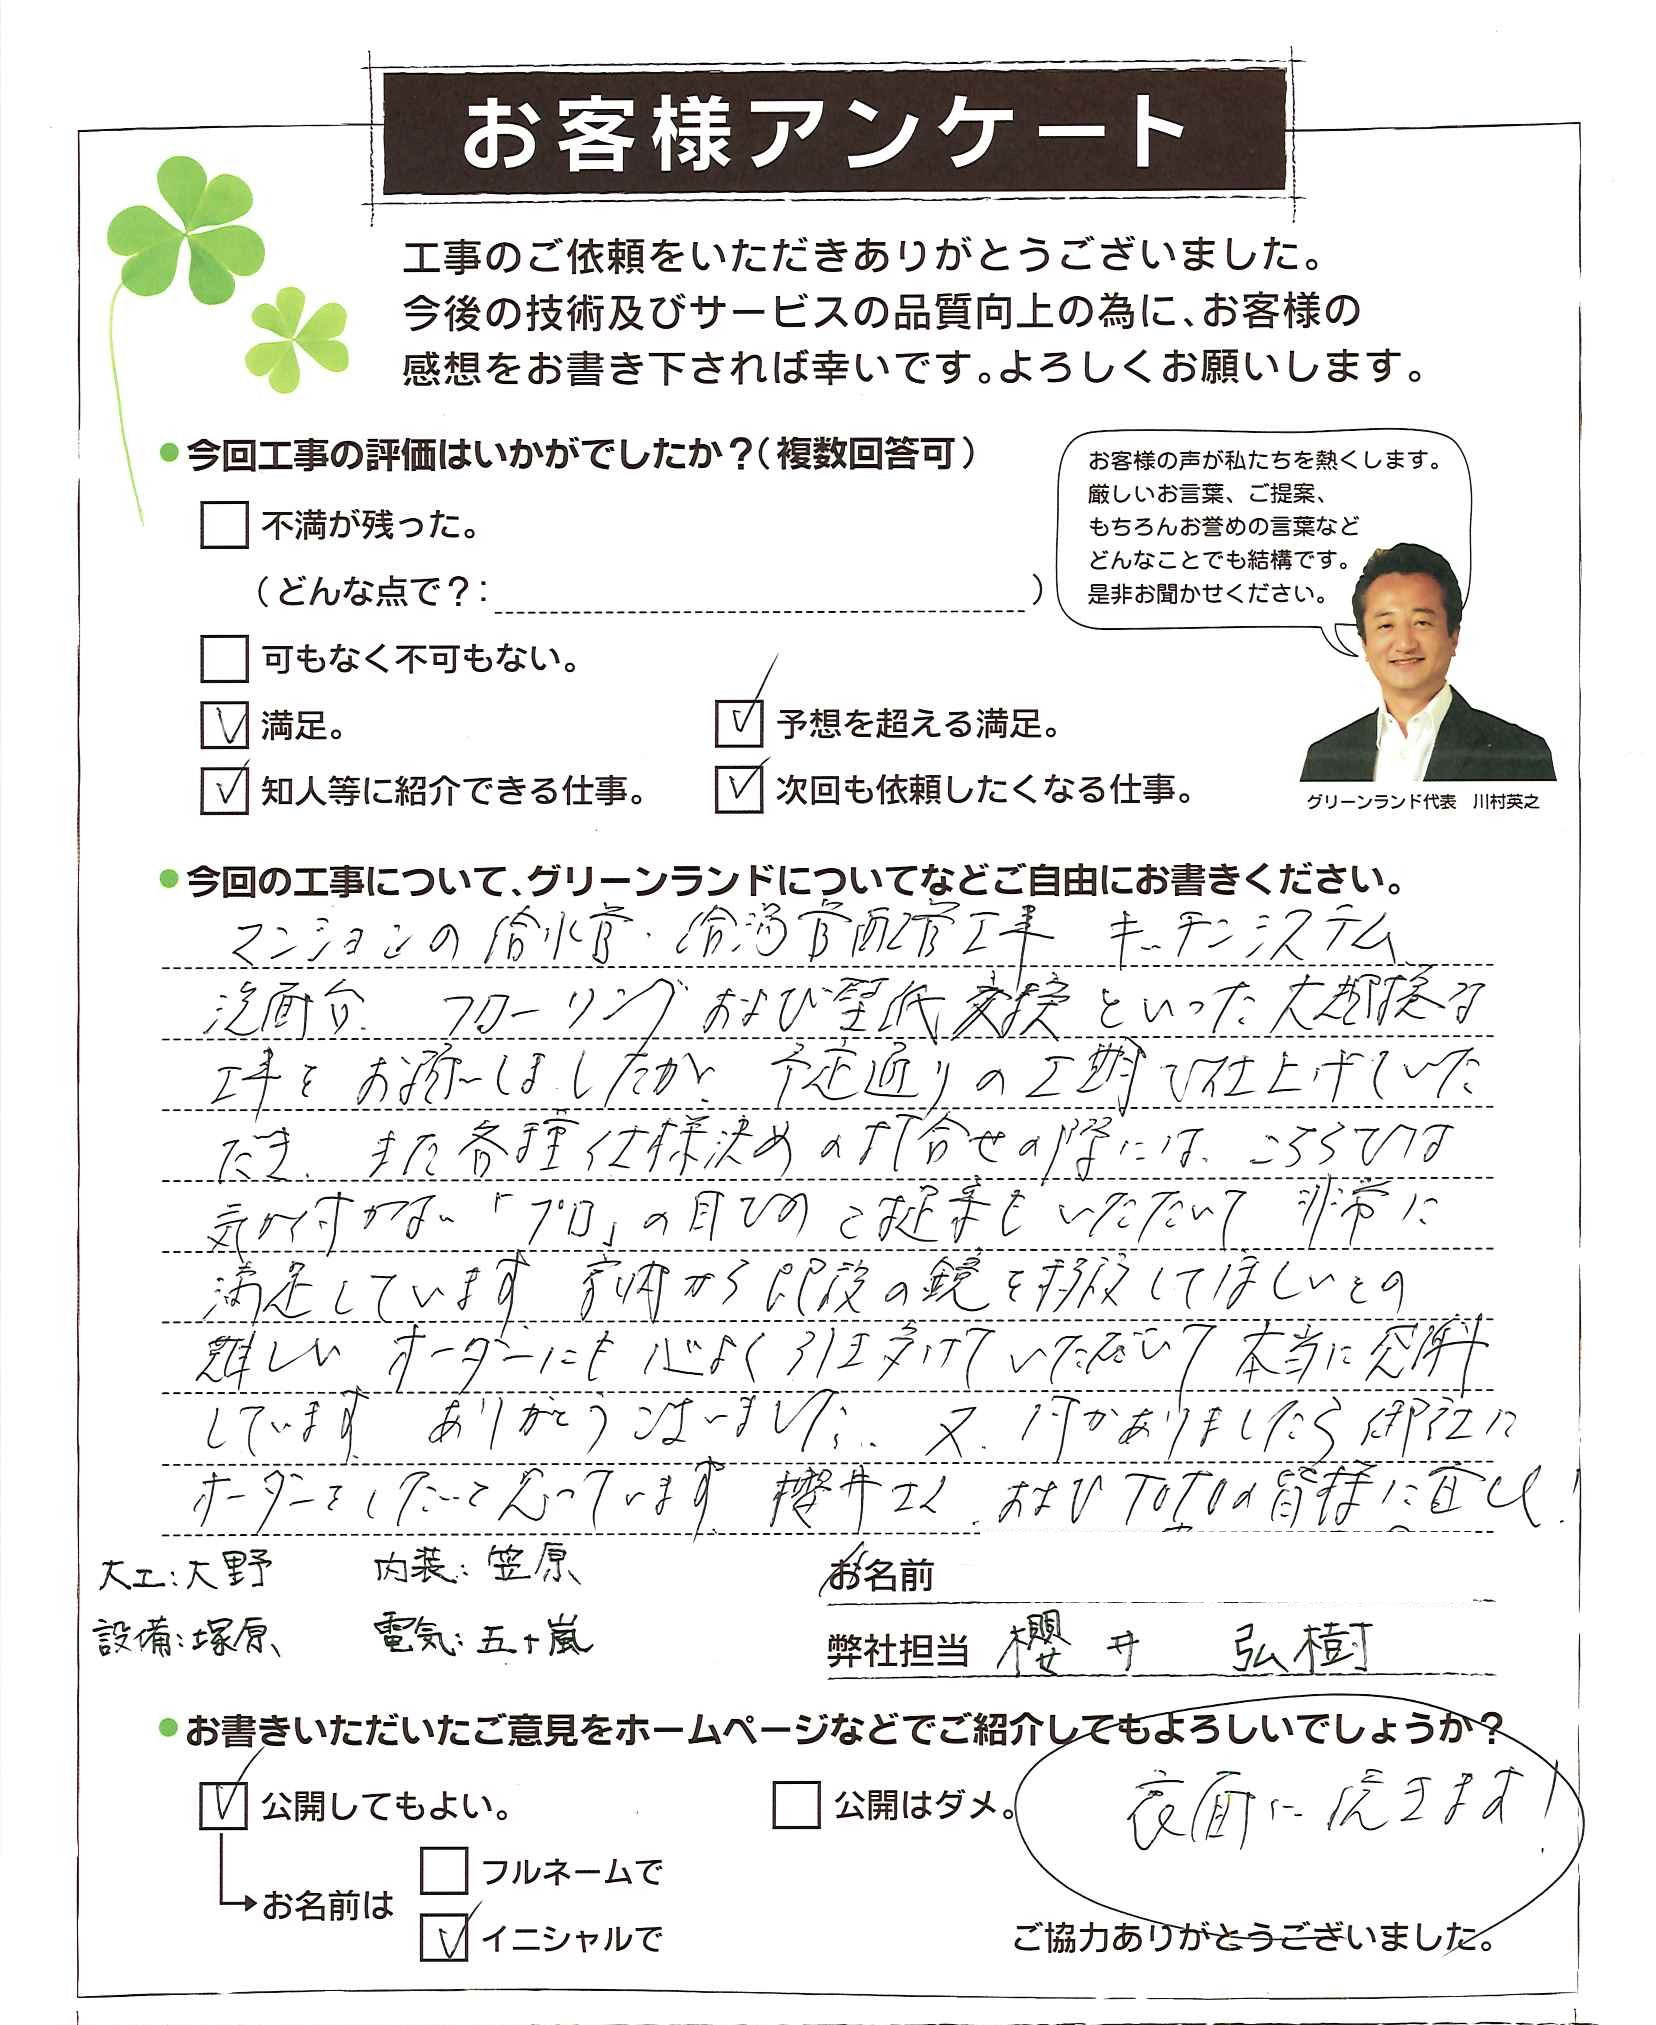 お客様アンケート
工事のご依頼をいただきありがとうございました。
今後の技術及びサービスの品質向上の為に、お客様の
感想をお書き下されば幸いです。よろしくお願いします。
●今回工事の評価はいかがでしたか？（複数回答可）
不満が残った。
（どんな点で？： ）
可もなく不可もない。
満足。
予想を超える満足。
知人等に紹介できる仕事。
次回も依頼したくなる仕事。
お客様の声が私たちを熱くします。
厳しいお言葉、ご提案、
もちろんお誉めの言葉など
どんなことでも結構です。
是非お聞かせください。
グリーンランド代表　川村英之
●今回の工事について、グリーンランドについてなどご自由にお書きください。
マンションの給水管・給湯管配管工事 キッチンシステム
洗面台、フローリングおよび壁紙交換といった大規模な
工事をお願いしましたが、予定通りの工期で仕上げていた
だき、また各種仕様決めの打合せの際には、こちらでは
気が付かない「プロ」の目での ご提案もいただいて 非常に
満足しています 家内から既設の鏡を移設してほしいとの
難しい オーダーにも 心よく引き受けていただいて 本当に感謝
しています ありがとうございました。又、何かありましたら御社に
オーダーをしたいと思っています 櫻井さん、およびTOTOの皆様に宜しく！
大工：大野　内装：笠原
設備：塚原　電気：五十嵐
お名前
弊社担当 櫻井 弘樹
●お書きいただいたご意見をホームページなどでご紹介してもよろしいでしょうか？
公開してもよい。
公開はダメ。
裏面に続きます！
お名前は
フルネームで
イニシャルで
ご協力ありがとうございました。